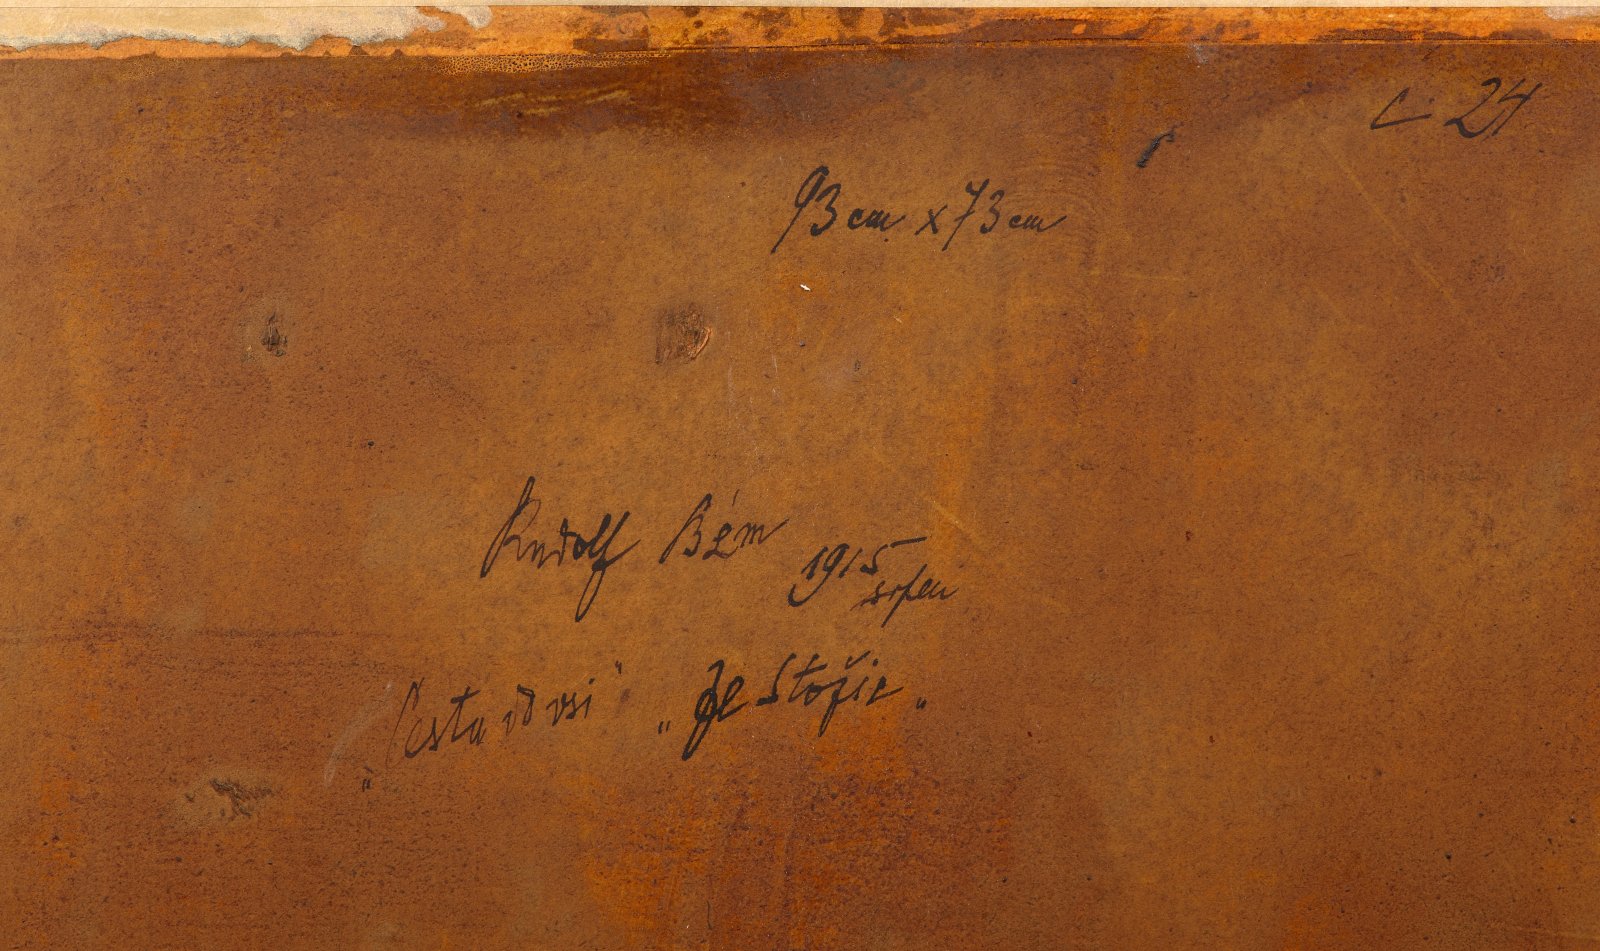 c. 24
93 cm x 73 cm
Rudolf Bém
1915
srpen
„Cesta vd vsi" „Ze Stožic„